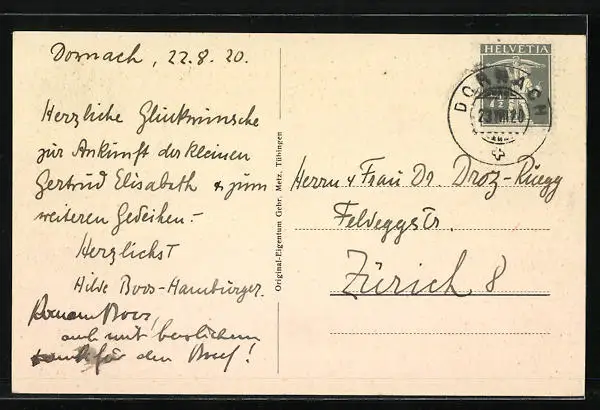 Dornach, 22.8.20.
Herzliche Glückwünsche
zur Ankunft der kleinen
Gertrud Elisabeth & zum
weiteren Gedeihen.-
Herzlichst
Hilde Boos-Hamburger.
Roman Boos,
auch mit herzlichem
Dank für den Brief!
Original-Eigentum Gebr. Metz, Tübingen
HELVETIA
7½
DORNACH
23.VIII.20
Herrn & Frau Dr. Droz-Rüegg
Feldeggstr.
Zürich 8